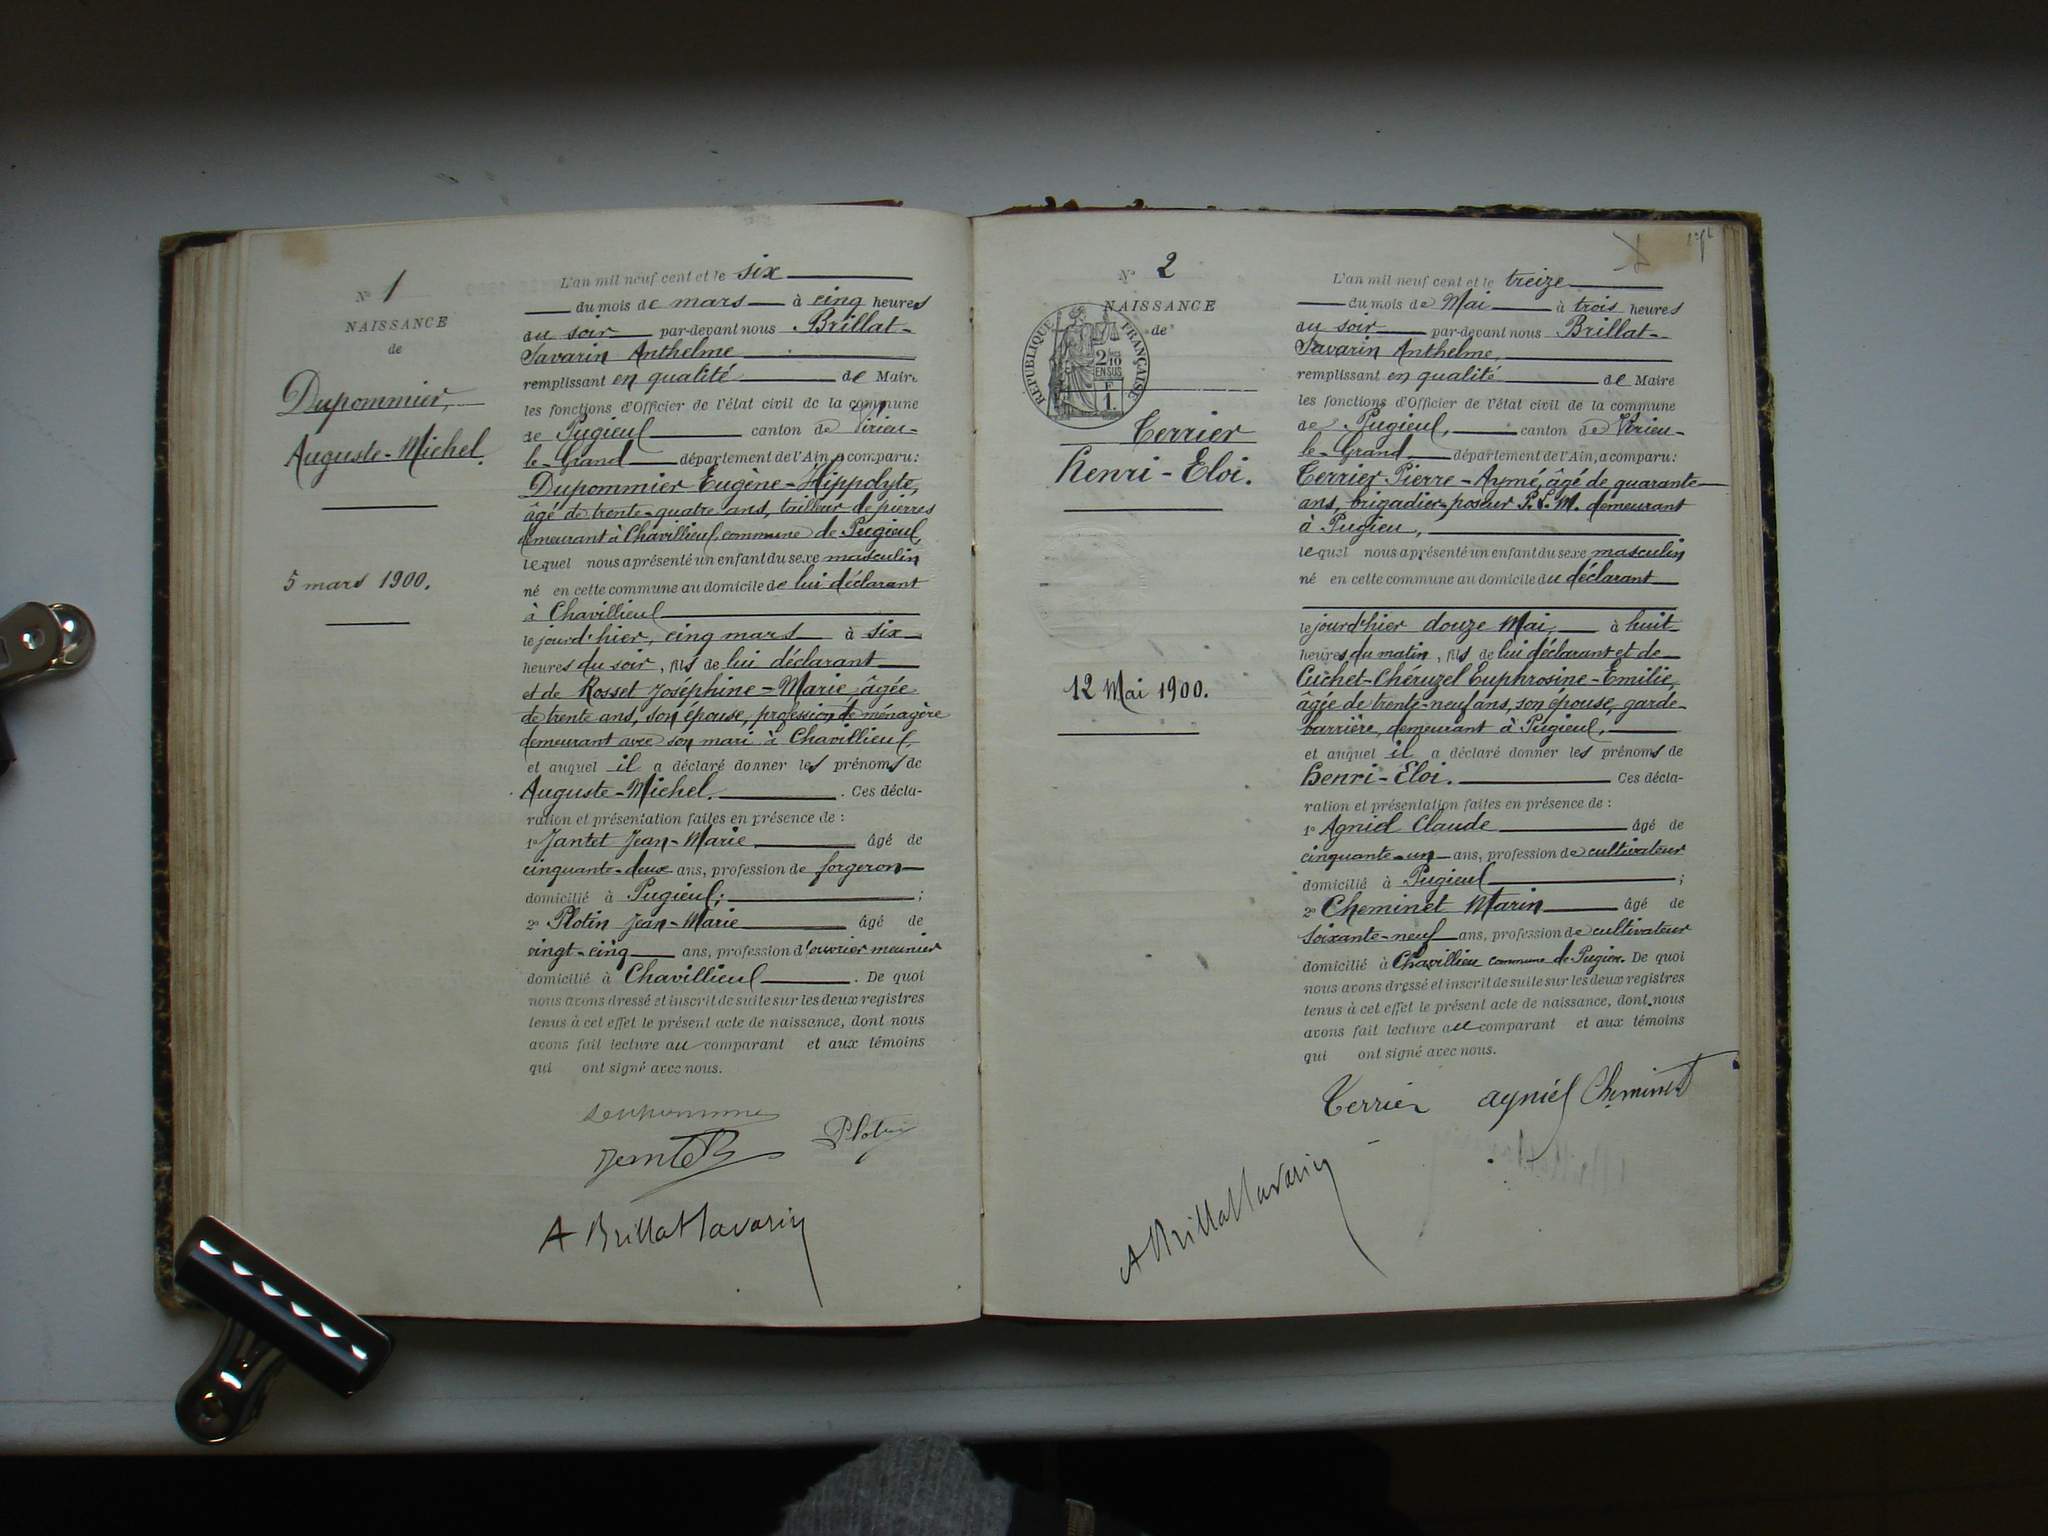 N° 1
NAISSANCE
de
Dupommier,
Auguste-Michel.
5 mars 1900.
L'an mil neuf cent et le six
du mois de mars à cinq heures
du soir par-devant nous Brillat-
Savarin Anthelme
remplissant en qualité de Maire
les fonctions d'Officier de l'état civil de la commune
de Pugieul canton de Virieu-
le-Grand département de l'Ain, a comparu:
Dupommier Eugène-Hippolyte,
âgé de trente-quatre ans, tailleur de pierres
demeurant à Chavillieul, commune de Pugieul,
lequel nous a présenté un enfant du sexe masculin
né en cette commune au domicile de lui déclarant
à Chavillieul
le jourd'hier, cinq mars à six
heures du soir, fils de lui déclarant
et de Rosset Joséphine-Marie, âgée
de trente ans, son épouse, profession de ménagère
demeurant avec son mari à Chavillieul,
et auquel il a déclaré donner les prénoms de
Auguste-Michel. Ces décla-
ration et présentation faites en présence de :
1° Jantet Jean-Marie âgé de
cinquante-deux ans, profession de forgeron
domicilié à Pugieul; ;
2° Plotin Jean-Marie âgé de
vingt-cinq ans, profession d'ouvrier meunier
domicilié à Chavillieul. De quoi
nous avons dressé et inscrit de suite sur les deux registres
tenus à cet effet le présent acte de naissance, dont nous
avons fait lecture au comparant et aux témoins
qui ont signé avec nous.
Plotin
A Brillat Savarin
N° 2
NAISSANCE
de
RÉPUBLIQUE FRANÇAISE
2/10
EN SUS
1F
Terrier
Henri-Eloi.
12 Mai 1900.
L'an mil neuf cent et le treize
du mois de Mai à trois heures
du soir par-devant nous Brillat-
Savarin Anthelme,
remplissant en qualité de Maire
les fonctions d'Officier de l'état civil de la commune
de Pugieul, canton de Virieu-
le-Grand département de l'Ain, a comparu:
Terrier Pierre-Aymé, âgé de quarante
ans, brigadier-poseur P.L.M. demeurant
à Pugieu,
lequel nous a présenté un enfant du sexe masculin,
né en cette commune au domicile du déclarant
le jourd'hier douze Mai, à huit
heures du matin, fils de lui déclarant et de
Cuchet-Chéruzel Euphrosine-Emilie,
âgée de trente-neuf ans, son épouse, garde-
barrière, demeurant à Pugieul,
et auquel il a déclaré donner les prénoms de
Henri-Eloi. Ces décla-
ration et présentation faites en présence de :
1° Agniel Claude âgé de
cinquante-un ans, profession de cultivateur
domicilié à Pugieul ;
2° Cheminet Marin âgé de
soixante-neuf ans, profession de cultivateur
domicilié à Chavillieu commune de Pugieu. De quoi
nous avons dressé et inscrit de suite sur les deux registres
tenus à cet effet le présent acte de naissance, dont nous
avons fait lecture au comparant et aux témoins
qui ont signé avec nous.
Terrier agniel Cheminet
A Brillat Savarin